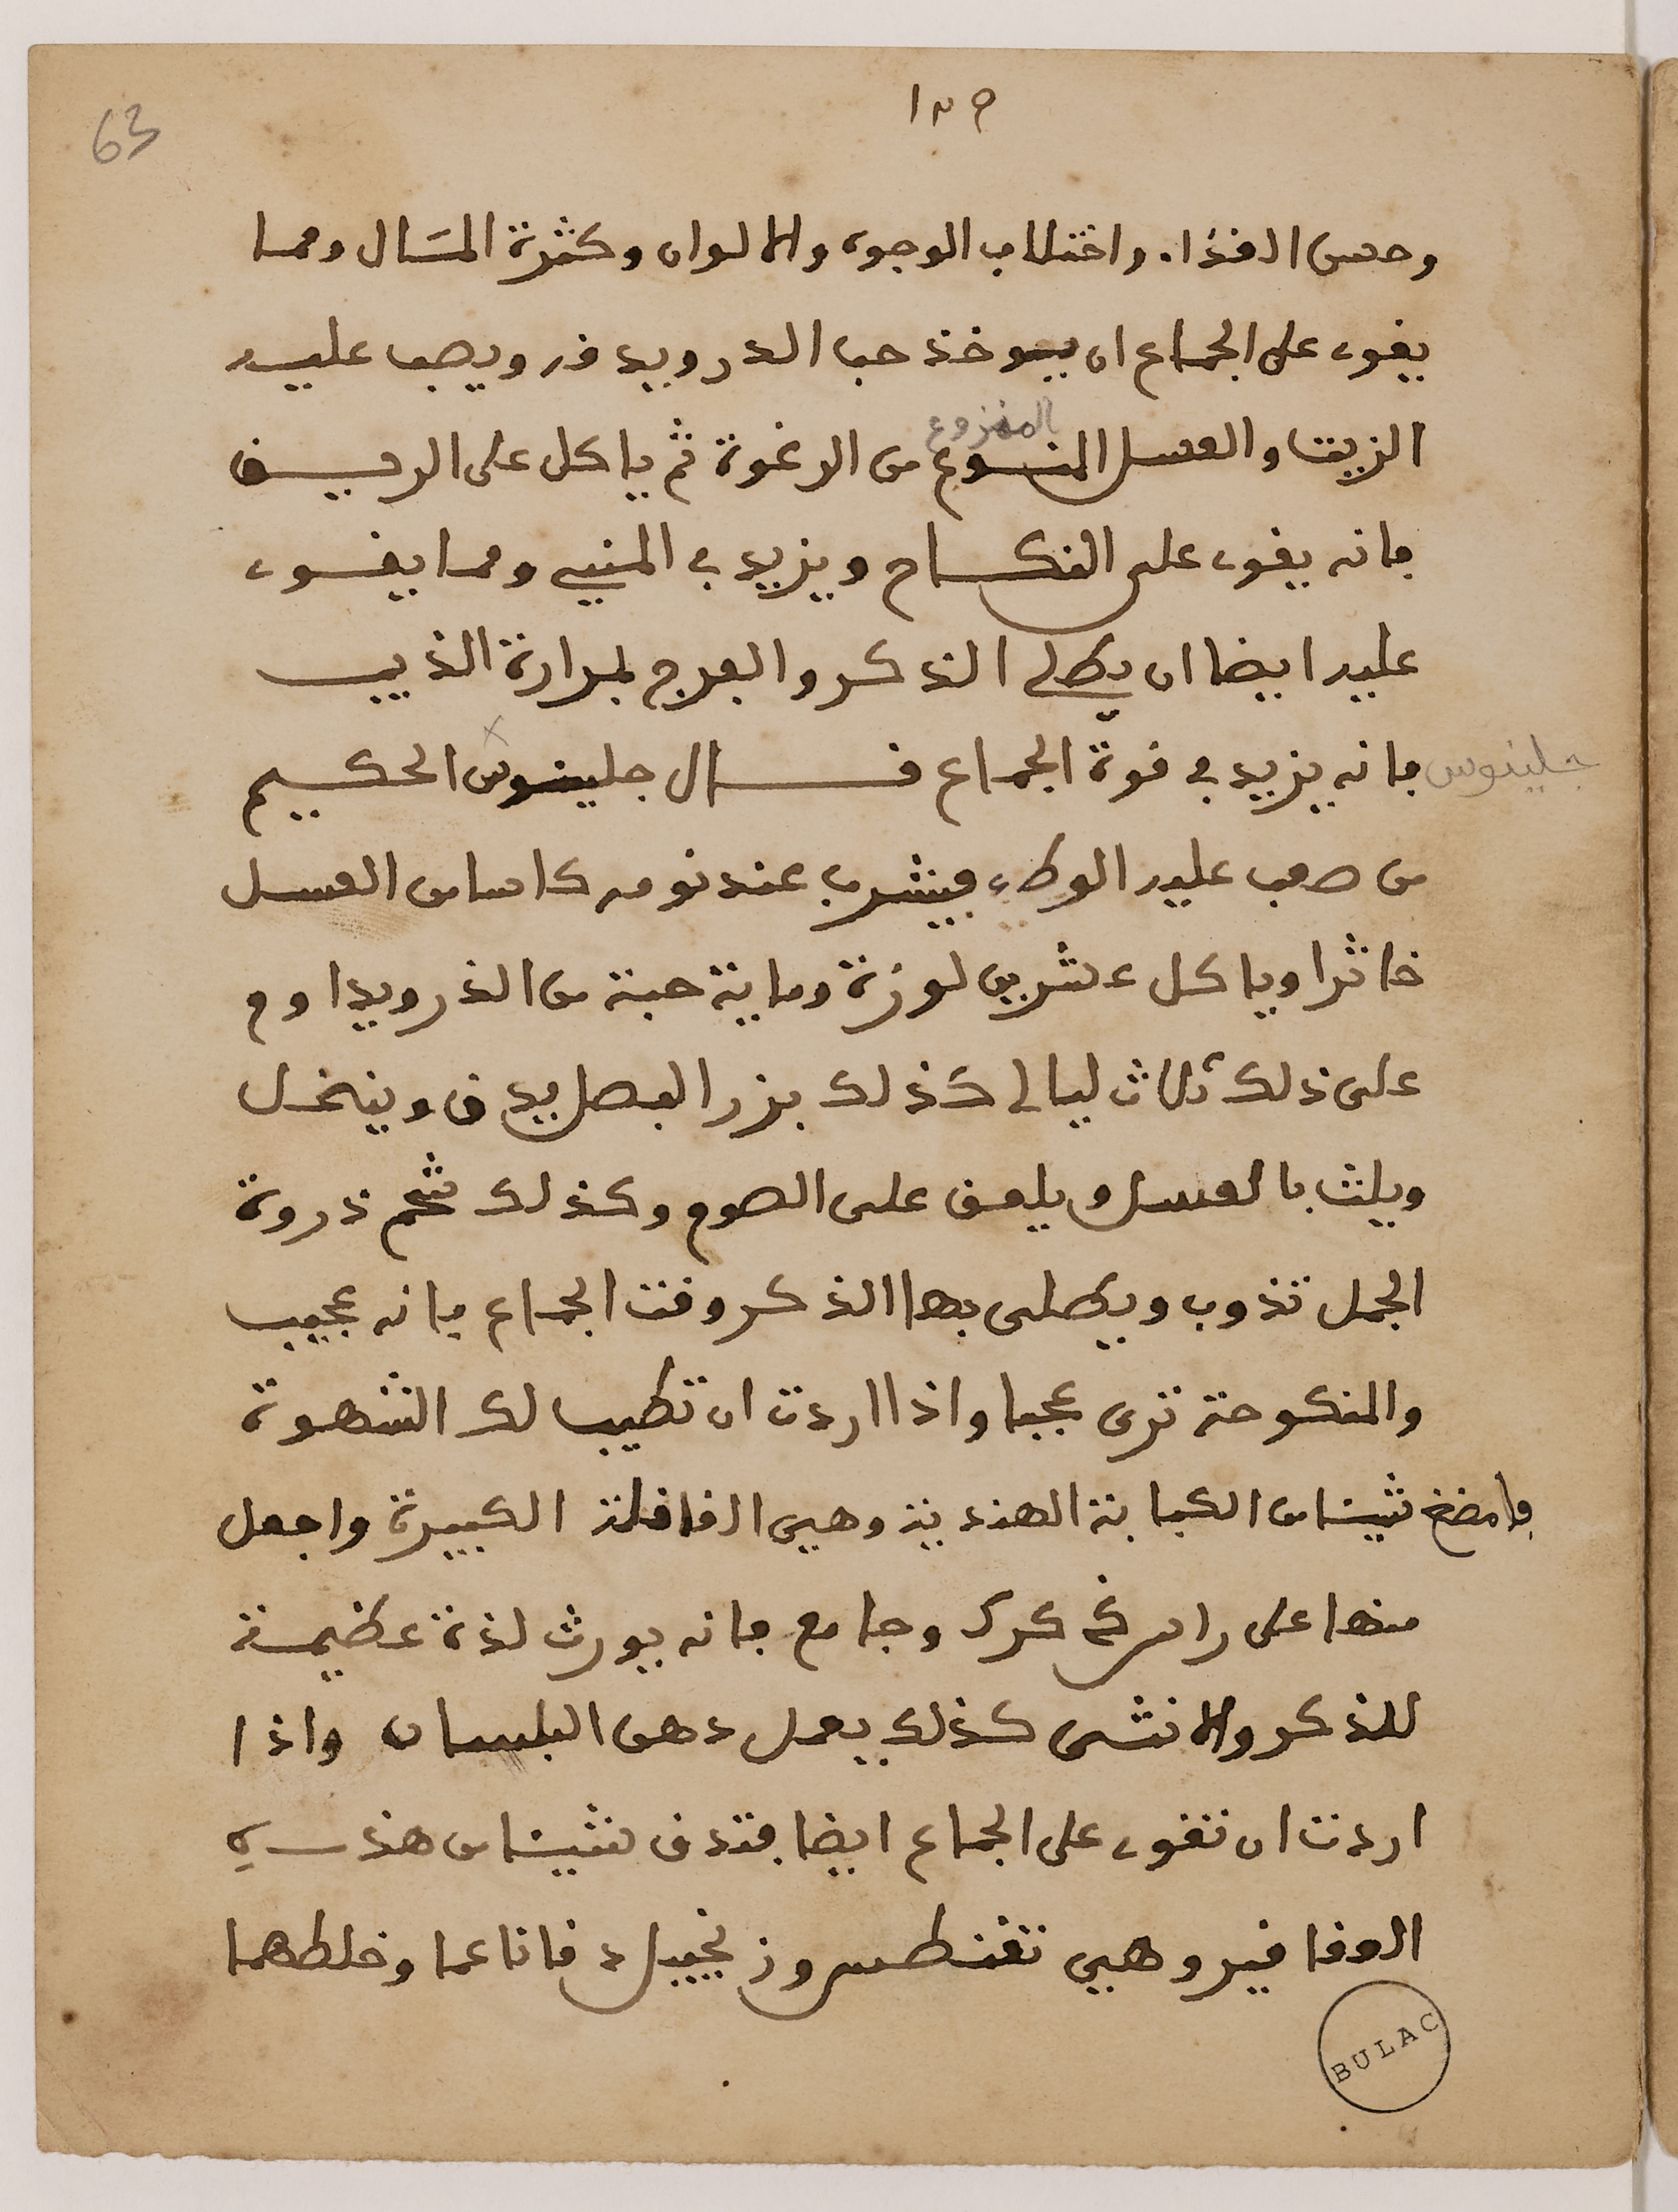 63
١٢٥
وحسن الغذاء واختلاب الوجوه والالوان وكثرة المسال ومما
يقوى على الجماع ان يوخذ حب الدرو يدق ويصب عليه
المنزوع
الزيت والعسل المنسوع من الرغوة ثم ياكل على الريـــق
فانه يقوى على النكـــاح ويزيد في المنيى ومما يقـــوى
عليه ايضا ان يطلى الذكر والفرج بمرارة الذيب
جلينوس
فانه يزيد في قوة الجماع قـــال جلينوس الحكيم
من صعب عليه الوطء فيشرب عند نومه كاسا من العسل
خاثرا وياكل عشرين لوزة وماية حبة من الذرو يداوم
على ذلك ثلاث ليالى كذلك بزر البصل يدق وينخل
ويلث بالعسل ويلعق على الصوم وكذلك شحم ذروة
الجمل تذوب ويطلى بها الذكر وقت الجماع فانه عجيب
والمنكوحة ترى عجبا واذا اردت ان تطيب لك الشهوة
فامضغ شيئا من الكبابة الهندية وهيى القاقلة الكبيرة واجعل
منها على راس ذكرك وجامع فانه يورث لذة عظيمة
للذكر والانثى كذلك يعمل دهن البلسان واذا
اردت ان تقوى على الجماع ايضا فتدق شيئا من هذه
العقاقير وهيى تقنطس وزنجبيل دقا ناعما وخلطهما
BULAC